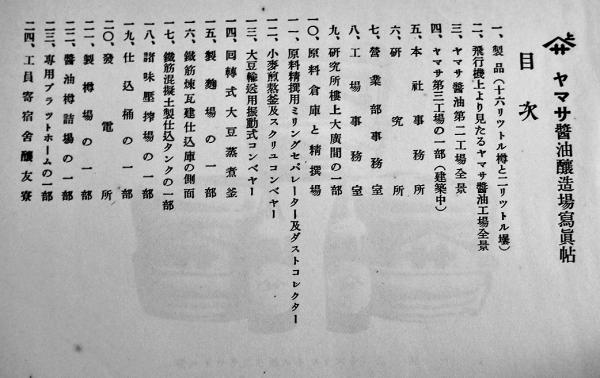 上
サ
ヤマサ醬油釀造場寫眞帖
目次
一、製品(十六リットル樽と二リットル壜)
二、飛行機上より見たるヤマサ醬油工場全景
三、ヤマサ醬油第二工場全景
四、ヤマサ第三工場の一部(建築中)
五、本社事務所
六、研究所
七、營業部事務室
八、工場事務室
九、研究所樓上大廣間の一部
一〇、原料倉庫と精撰場
一一、原料精撰用ミリングセパレーター及ダストコレクター
一二、小麥煎熬釜及スクリユコンベヤー
一三、大豆輸送用振動式コンベヤー
一四、回轉式大豆蒸煮釜
一五、製麴場の一部
一六、鐵筋煉瓦建仕込庫の側面
一七、鐵筋混凝土製仕込タンクの一部
一八、諸味壓搾場の一部
一九、仕込桶の一部
二〇、發電所
二一、製樽場の一部
二二、醬油樽詰場の一部
二三、專用プラットホームの一部
二四、工員寄宿舍釀友寮